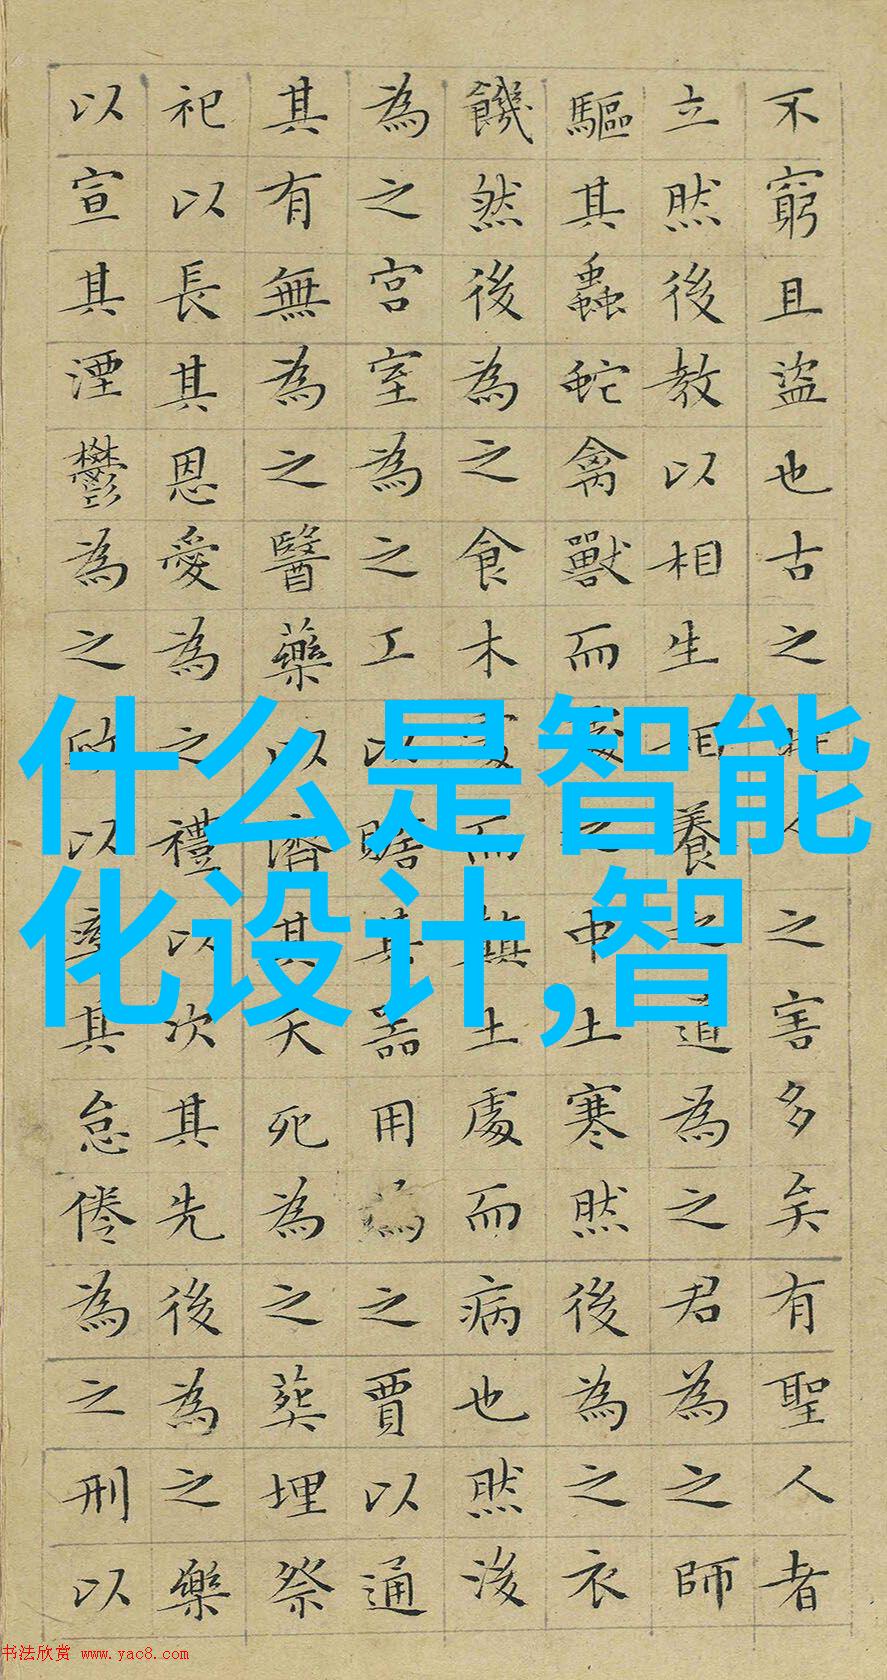 不窮且盜也古之時人之害多矣有聖人者
立然後教以相生相養之道為之君為之師
驅其蟲蛇禽獸而處之中土寒然後為之衣
饑然後為之食木處而顛土處而病也然後
為之宮室為之工以贍其器用為之賈以通
其有無為之醫藥以濟其夭死為之葬埋祭
祀以長其恩愛為之禮以次其先後為之樂
以宣其湮鬱為之政以率其怠倦為之刑以
什么是智能
化设计,智
书法欣赏 www.yac8.com